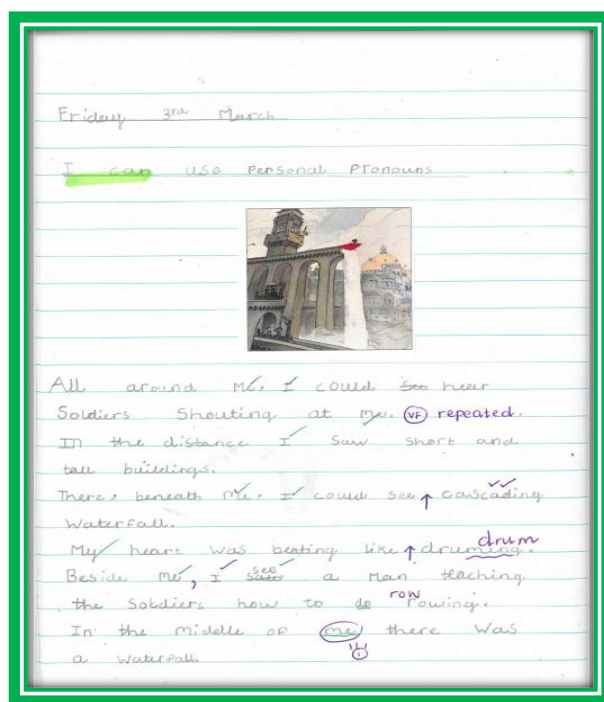 Friday 3rd March
I can use personal pronouns
All around me, I could see hear
Soldiers Shouting at me. VF repeated.
In the distance I saw short and
tall buildings.
There, beneath me, I could see ↑ cascading
waterfall.
drum
My heart was beating like ↑ druming.
see
Beside me, I saw a man teaching
row
the Soldiers how to do rowing.
In the middle of me there was
a waterfall.